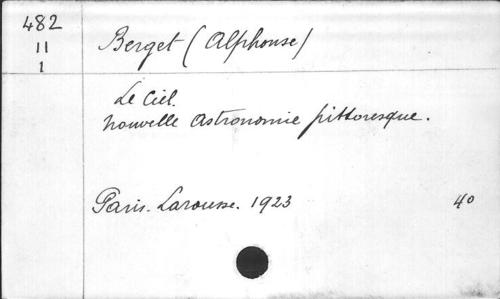 482
11
1
Berget (Alphonse)
Le Ciel.
Nouvelle Astronomie pittoresque.
Paris. Larousse. 1923
40